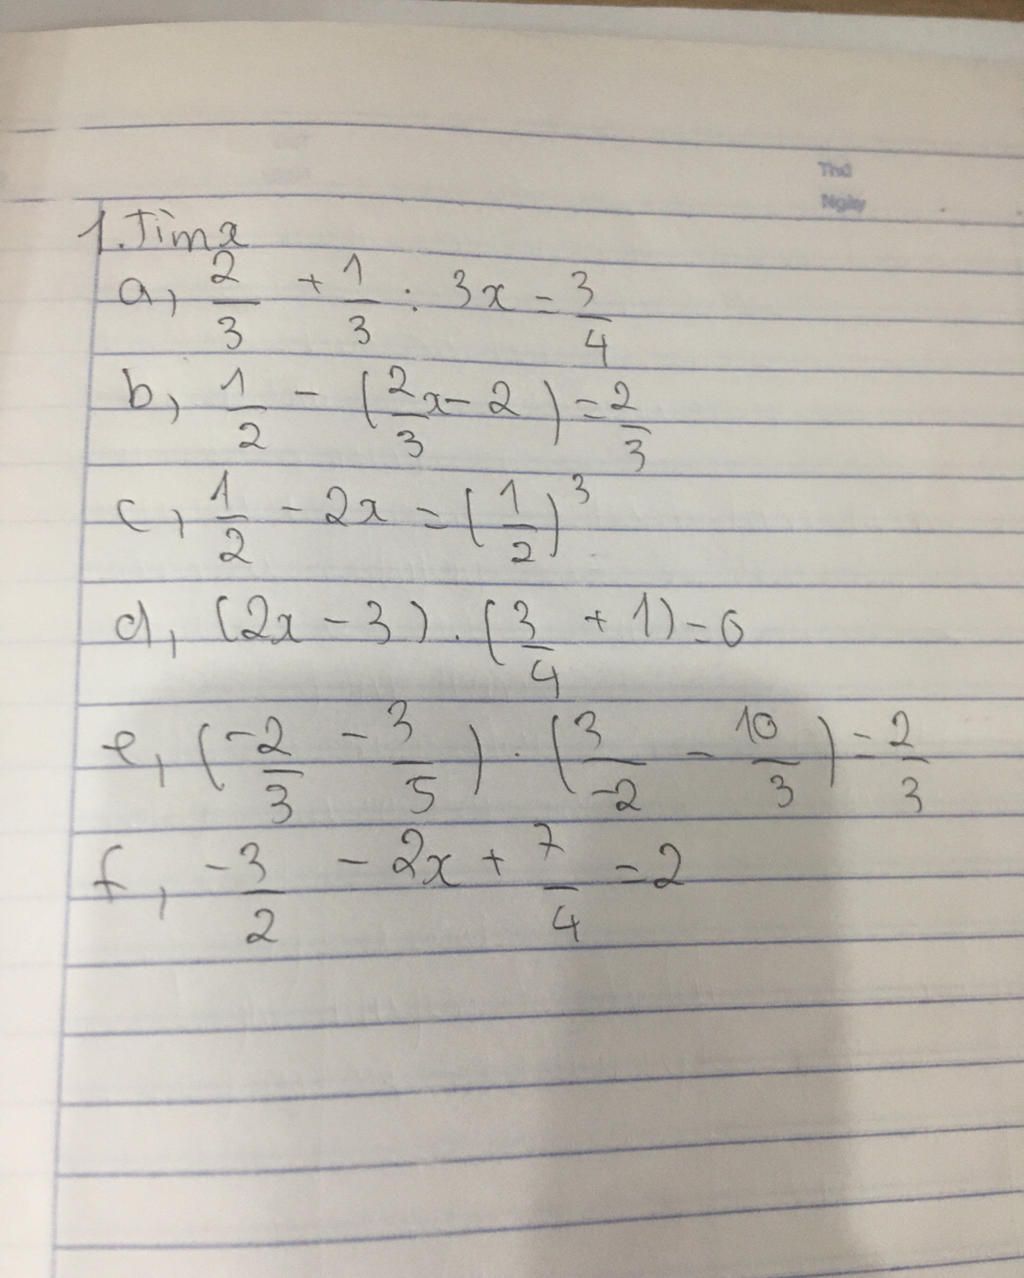 Thứ
Ngày
1. Tìm x
a, 2/3 + 1/3 : 3x = 3/4
b, 1/2 - (2/3 x - 2) = 2/3
c, 1/2 - 2x = (1/2)^3
d, (2x - 3) . (3/4 + 1) = 0
e, (-2/3 - 3/5) . (3/-2 - 10/3) = 2/3
f, -3/2 - 2x + 7/4 = 2